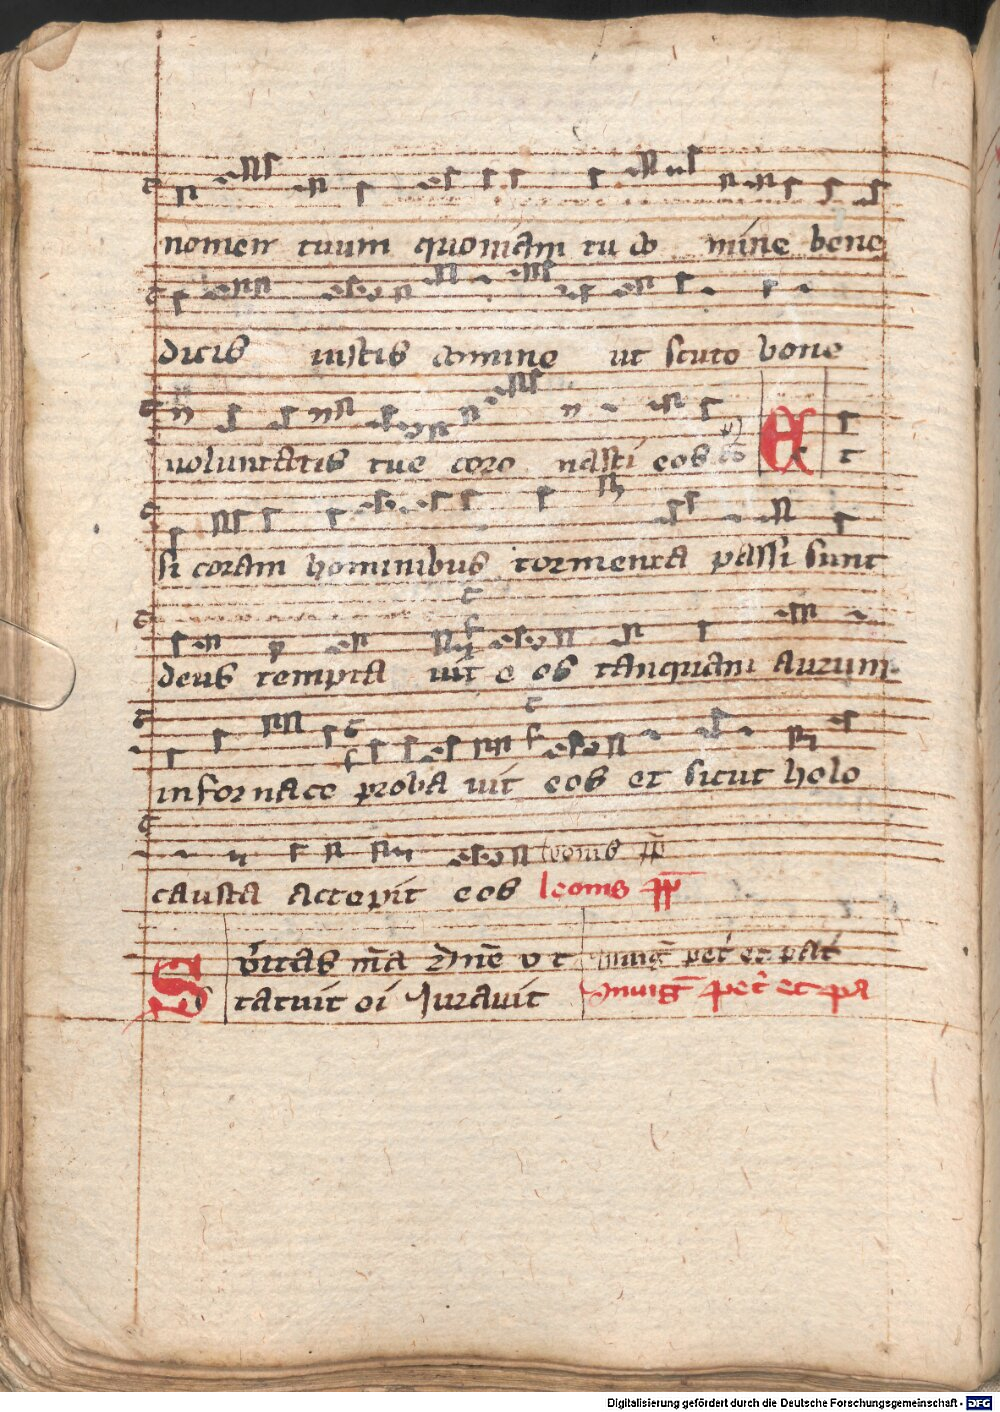 nomen tuum quoniam tu do mine bene
dicis iustis domine ut scuto bone
voluntatis tue coro nasti eos Et
si coram hominibus tormenta passi sunt
deus tempta uit e os tanquam aurum
in fornace proba uit eos et sicut holo
causta accepit eos leonis pp
leonis pp
tatuit ei Juravit
Digitalisierung gefördert durch die Deutsche Forschungsgemeinschaft - DFG